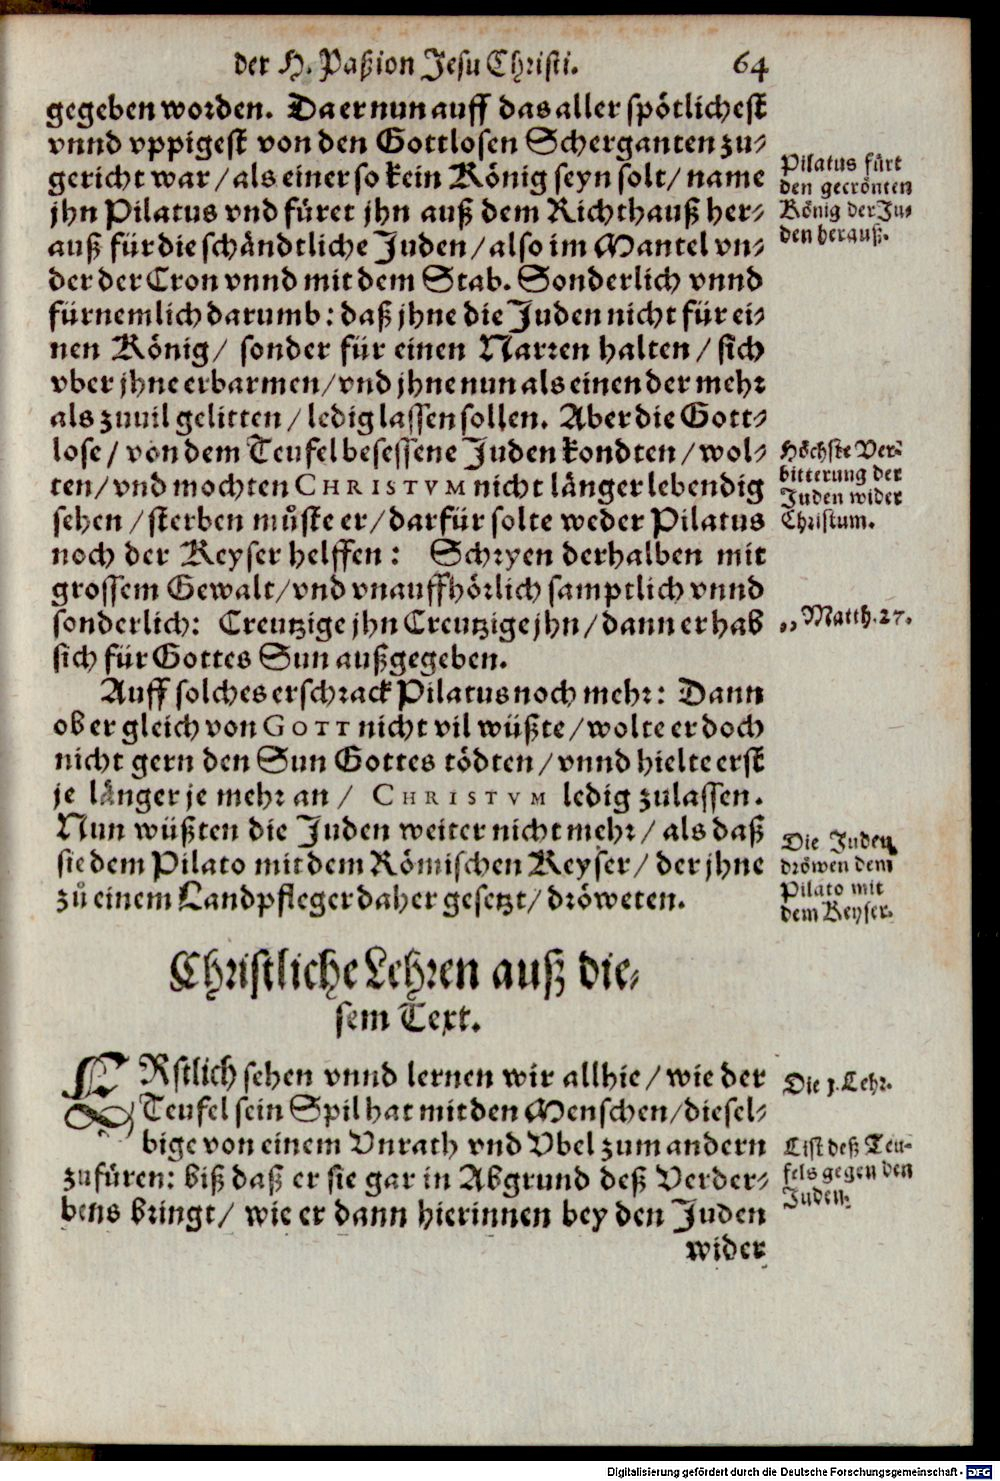 der H. Paßion Jesu Christi. 64
gegeben worden. Da er nun auff das aller spötlichest
vnnd vppigest von den Gottlosen Scherganten zu-
gericht war / als einer so kein König seyn solt / name
jhn Pilatus vnd füret jhn auß dem Richthauß her-
auß für die schändtliche Juden / also im Mantel vn-
der der Cron vnnd mit dem Stab. Sonderlich vnnd
fürnemlich darumb: daß jhne die Juden nicht für ei-
nen König / sonder für einen Narren halten / sich
vber jhne erbarmen / vnd jhne nun als einen der mehr
als zuuil gelitten / ledig lassen sollen. Aber die Gott-
lose / von dem Teufel besessene Juden kondten / wol-
ten / vnd mochten CHRISTVM nicht länger lebendig
sehen / sterben můste er / darfür solte weder Pilatus
noch der Keyser helffen: Schryen derhalben mit
grossem Gewalt / vnd vnauffhörlich samptlich vnnd
sonderlich: Creutzige jhn Creutzige jhn / dann er hab
sich für Gottes Sun außgegeben.
Auff solches erschrack Pilatus noch mehr: Dann
ob er gleich von GOTT nicht vil wüßte / wolte er doch
nicht gern den Sun Gottes tödten / vnnd hielte erst
je länger je mehr an / CHRISTVM ledig zulassen.
Nun wüßten die Juden weiter nicht mehr / als daß
sie dem Pilato mit dem Römischen Keyser / der jhne
zů einem Landpfleger daher gesetzt / dröweten.
Pilatus fürt
den gecrönten
König der Ju-
den herauß.
Höchste Ver-
bitterung der
Juden wider
Christum.
„ Matth. 27.
Die Juden
dröwen dem
Pilato mit
dem Keyser.
Christliche Lehren auß die-
sem Text.
ERstlich sehen vnnd lernen wir allhie / wie der
Teufel sein Spil hat mit den Menschen / diesel-
bige von einem Vnrath vnd Vbel zum andern
zufüren: biß daß er sie gar in Abgrund deß Verder-
bens bringt / wie er dann hierinnen bey den Juden
wider
Die 1. Lehr.
List deß Teu-
fels gegen den
Juden.
Digitalisierung gefördert durch die Deutsche Forschungsgemeinschaft - DFG